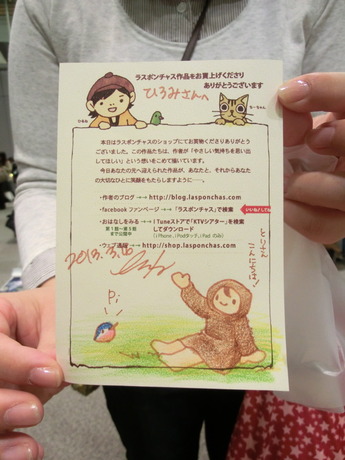 ラスポンチャス作品をお買上げくださり
ありがとうございます
ひろみさんへ
ひろみ
ちーちゃん
本日はラスポンチャスのショップにてお買物くださりありがとうご
ざいました。この作品たちは、作者が「やさしい気持ちを思い出
してほしい」という想いをこめて描いています。
今日あなたの元へ迎えられた作品が、あなたと、それからあなた
の大切なひとに笑顔をもたらしますように──。
・作者のブログ →→ http://blog.lasponchas.com
・facebook ファンページ →→「ラスポンチャス」で検索
・おはなしをみる →→ iTuneストアで「KTVシアター」を検索
してダウンロード
第1話〜第3話
まで公開中
(iPhone、iPodタッチ、iPad のみ)
http://shop.lasponchas.com
2013.3.10
とりさん
こんにちは!
Pi